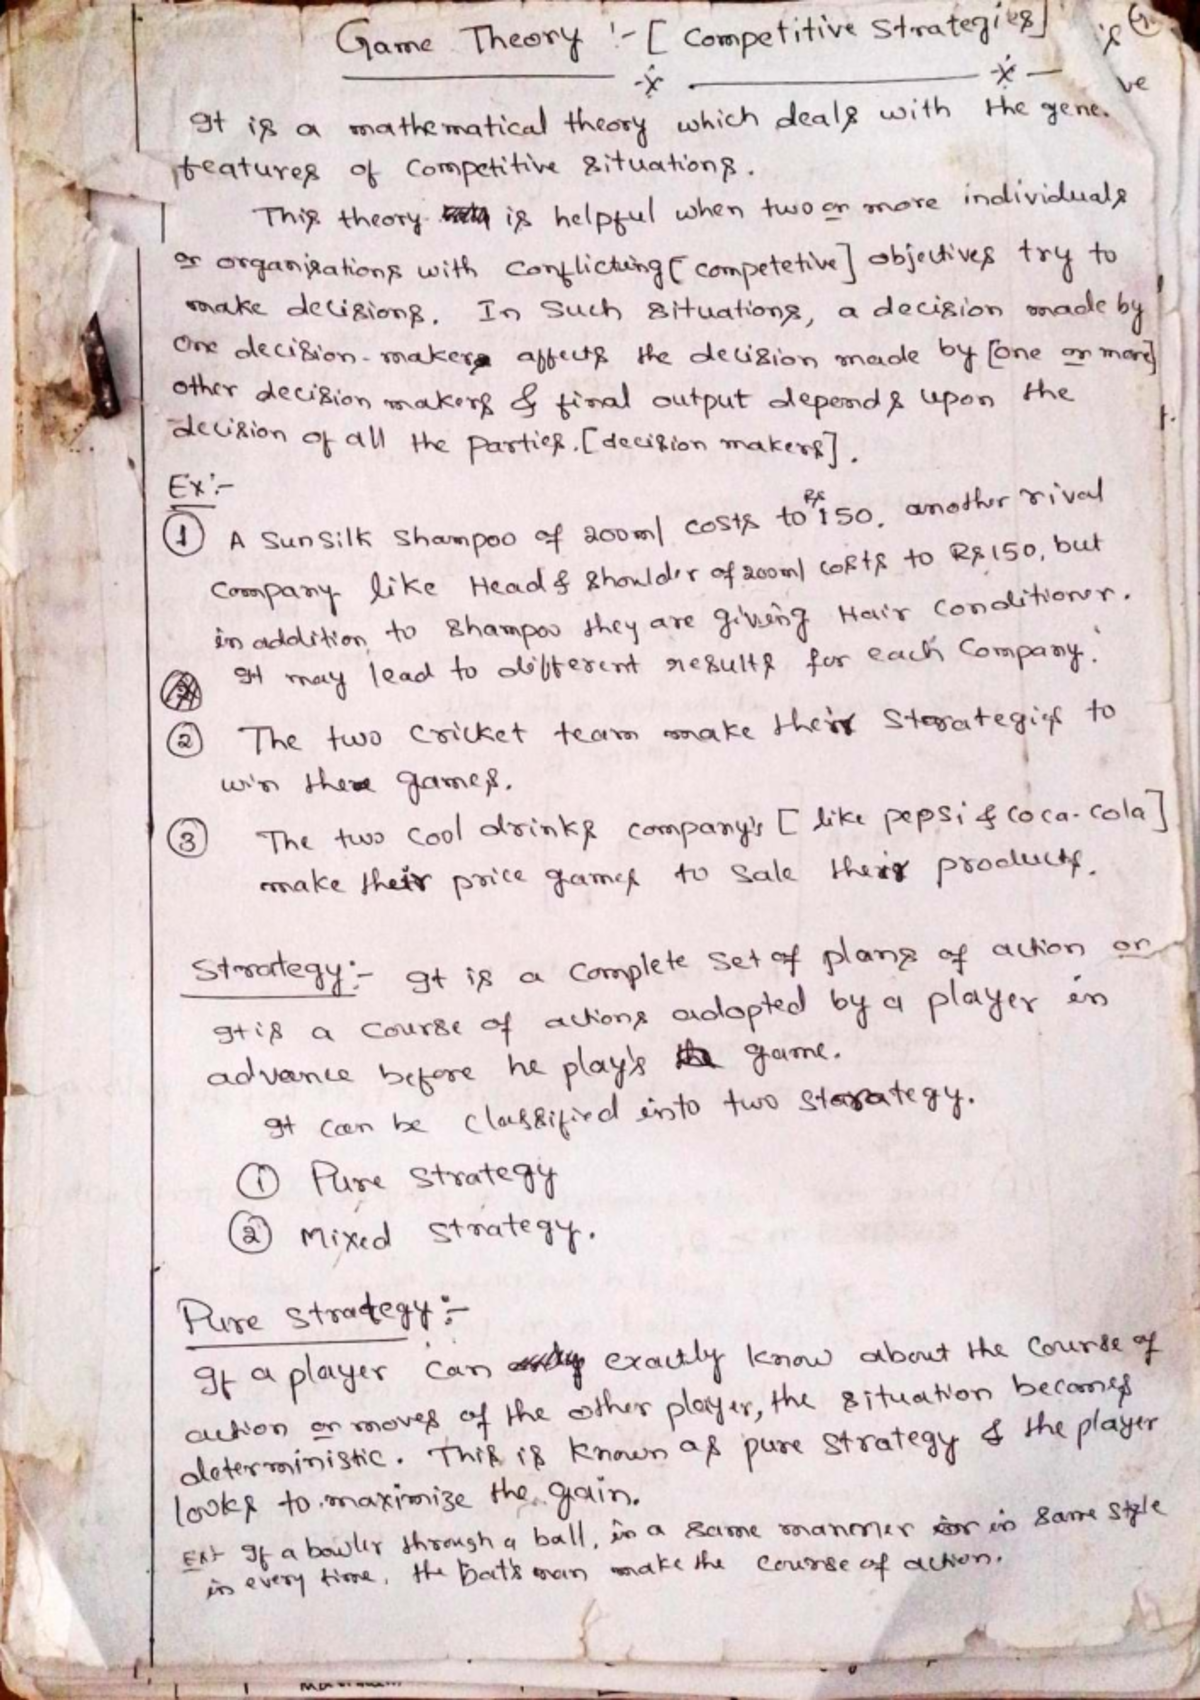 Game Theory :- [ Competitive Strategies]
It is a mathematical theory which deals with the gene
features of competitive situations.
This theory is helpful when two or more individuals
or organisations with conflicting [ competetive ] objectives try to
make decisions. In Such situations, a decision made by
one decision-makers affects the decision made by [one or more]
other decision makers & final output depends upon the
decision of all the parties. [decision makers].
Ex:-
① A Sunsilk Shampoo of 200ml costs to Rs 150. another rival
Company like Head & Shoulder of 200ml costs to Rs 150, but
in addition to Shampoo they are giving Hair conditioner.
It may lead to different results for each Company.
② The two cricket team make their Storategies to
win there games.
③ The two cool drinks company's [ like pepsi & coca-cola ]
make their price games to Sale their products.
Strategy:- It is a complete set of plans of action or
It is a course of actions adopted by a player in
advance before he play's game.
It can be classified into two Storategy.
① Pure Strategy
② Mixed Strategy.
Pure Strategy:-
If a player can exactly know about the course of
action or moves of the other player, the situation becomes
deterministic. This is known as pure strategy & the player
looks to maximize the gain.
Ex:- If a bowler through a ball, in a same manner or in same style
in every time, the bats man make the course of action.